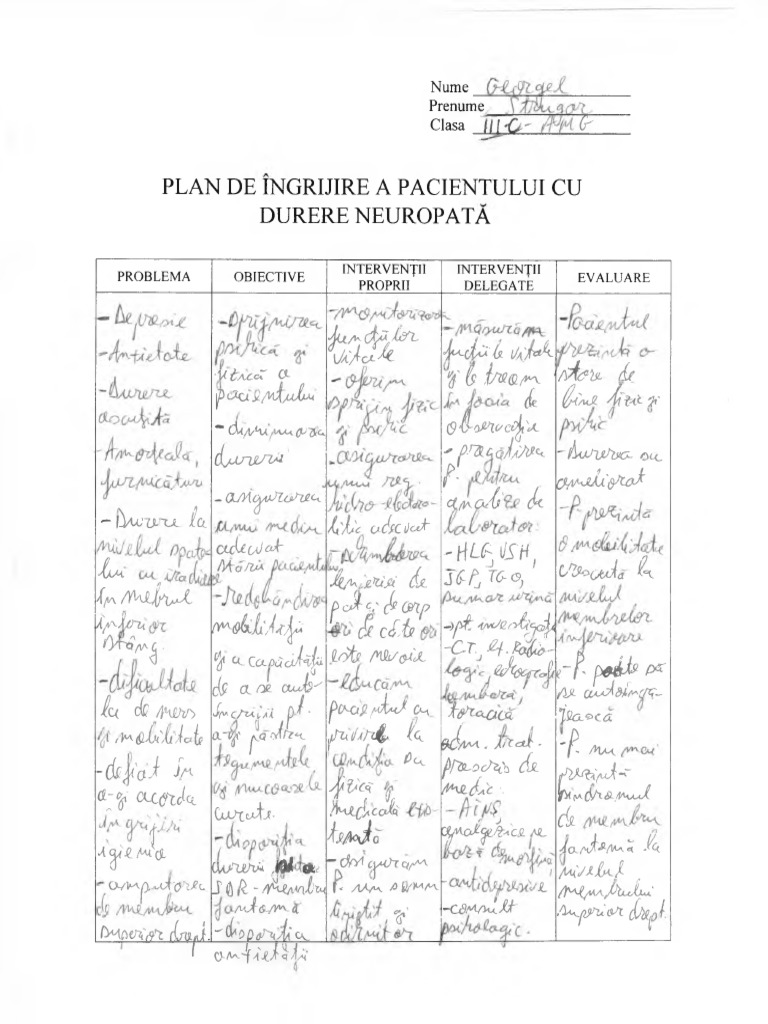 Nume Georgel
Prenume Strugar
Clasa III-C-AMG
PLAN DE ÎNGRIJIRE A PACIENTULUI CU
DURERE NEUROPATĂ
PROBLEMA
- Depresie
- Anxietate
- Durere
ascuțită
- Amorțeală,
furnicături
- Durere la
nivelul spate
lui cu iradiere
în mebrul
inferior
stâng.
- dificultate
la de mers
și mobilitate
- deficit în
a-și acorda
îngrijiri
igienice
- amputarea
de membru
superior drept.
OBIECTIVE
- Sprijinirea
psihică și
fizică a
pacientului
- diminuarea
durerii
- asigurarea
unui mediu
adecvat
stării pacientului
- Redobândirea
mobilității
și a capacității
de a se auto-
îngriji pt.
a-și păstra
tegumentele
și mucoasele
curate.
- dispariția
durerii
SDR - membru
fantomă
- dispariția
anxietății
INTERVENȚII
PROPRII
- monitorizarea
funcțiilor
vitale
- oferim
sprijin fizic
și psihic
- asigurarea
unui reg.
hidro-electro-
litic adecvat
- schimbarea
lenjeriei de
pat și de corp
ori de câte ori
este nevoie
- educăm
pacientul cu
privire la
condiția sa
fizică și
medicală
- asigurăm
P. un somn
liniștit și
odihnitor
INTERVENȚII
DELEGATE
- măsurăm
funcțiile vitale
și le trecem
în foaia de
observație
- pregătirea
P. pentru
analize de
laborator:
- HLG, VSH,
TGP, TGO,
sumar urină
- pt. investigații
- CT, ex. Radio-
logic, ecografie
lombară,
toracică
adm. trat.
prescris de
medic.
- AINS,
analgezice pe
bază de morfină,
- antidepresive
- consult
psihologic.
EVALUARE
- Pacientul
prezintă o
stare de
bine fizic și
psihic
- Durerea sa
ameliorat
- P. prezintă
o mobilitate
crescută la
nivelul
membrelor
inferioare
- P. poate să
se autoîngri-
jească
- P. nu mai
prezintă
sindromul
de membru
fantomă la
nivelul
membrului
superior drept.